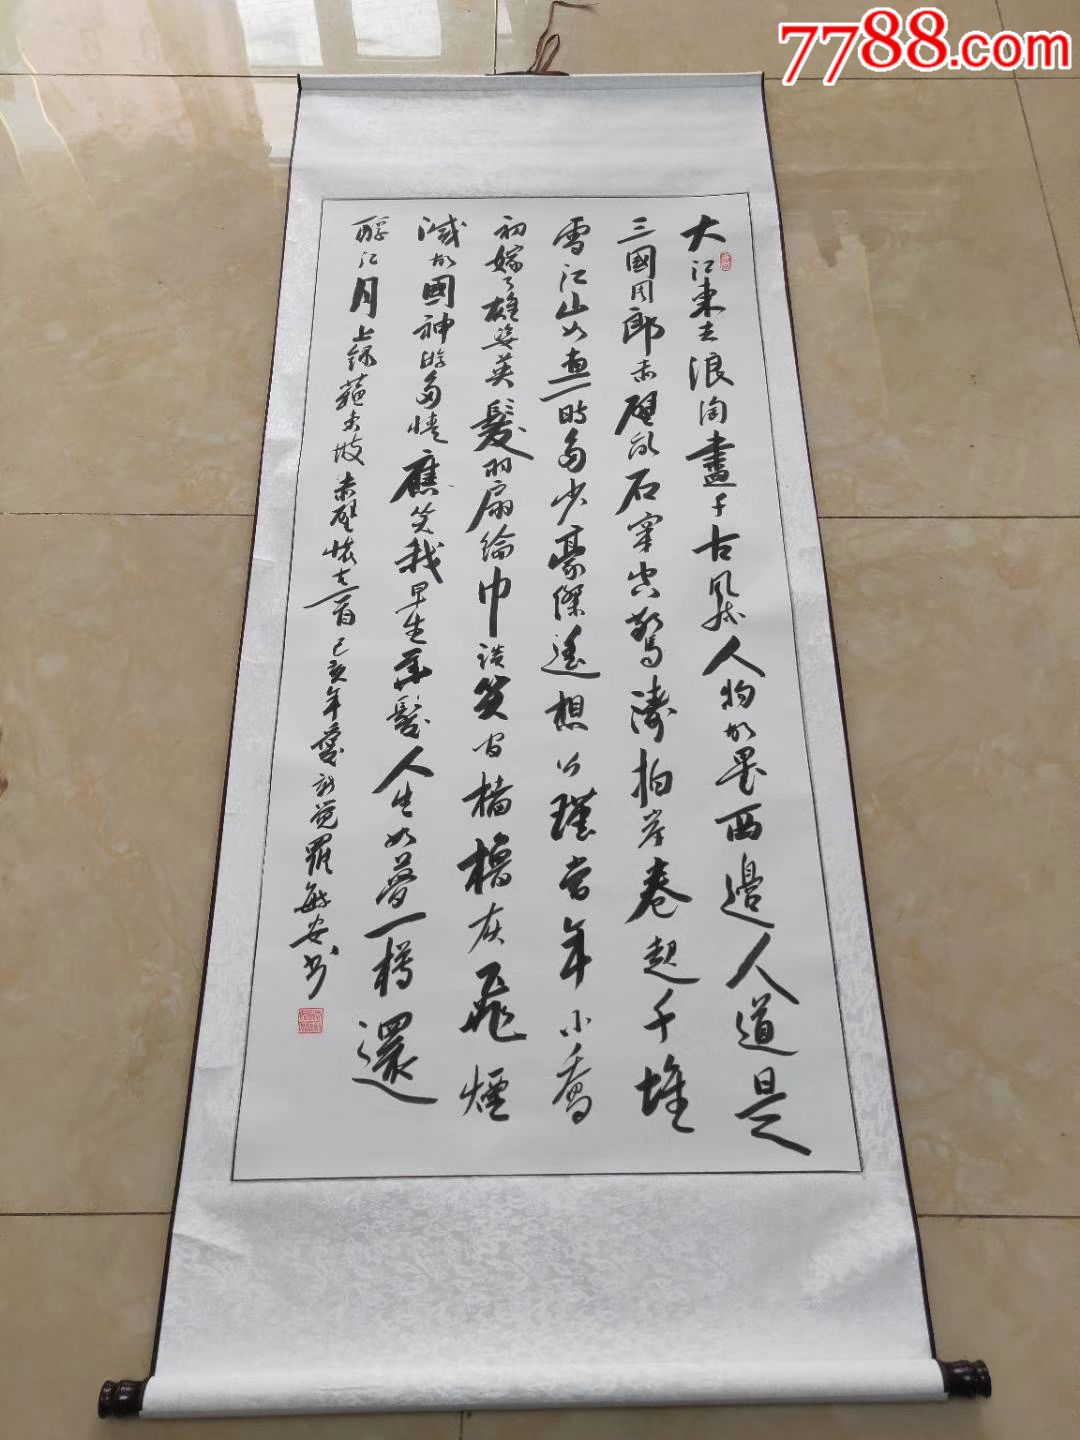 7788.com
大江東去浪淘盡千古風流人物故壘西邊人道是
三國周郎赤壁亂石穿空驚濤拍岸卷起千堆
雪江山如畫一時多少豪傑遙想公瑾當年小喬
初嫁了雄姿英髮羽扇綸巾談笑間檣櫓灰飛煙
滅故國神游多情應笑我早生華髮人生如夢一樽還
酹江月上錄蘇東坡赤壁懷古一首己亥年愛新覺羅毓安書